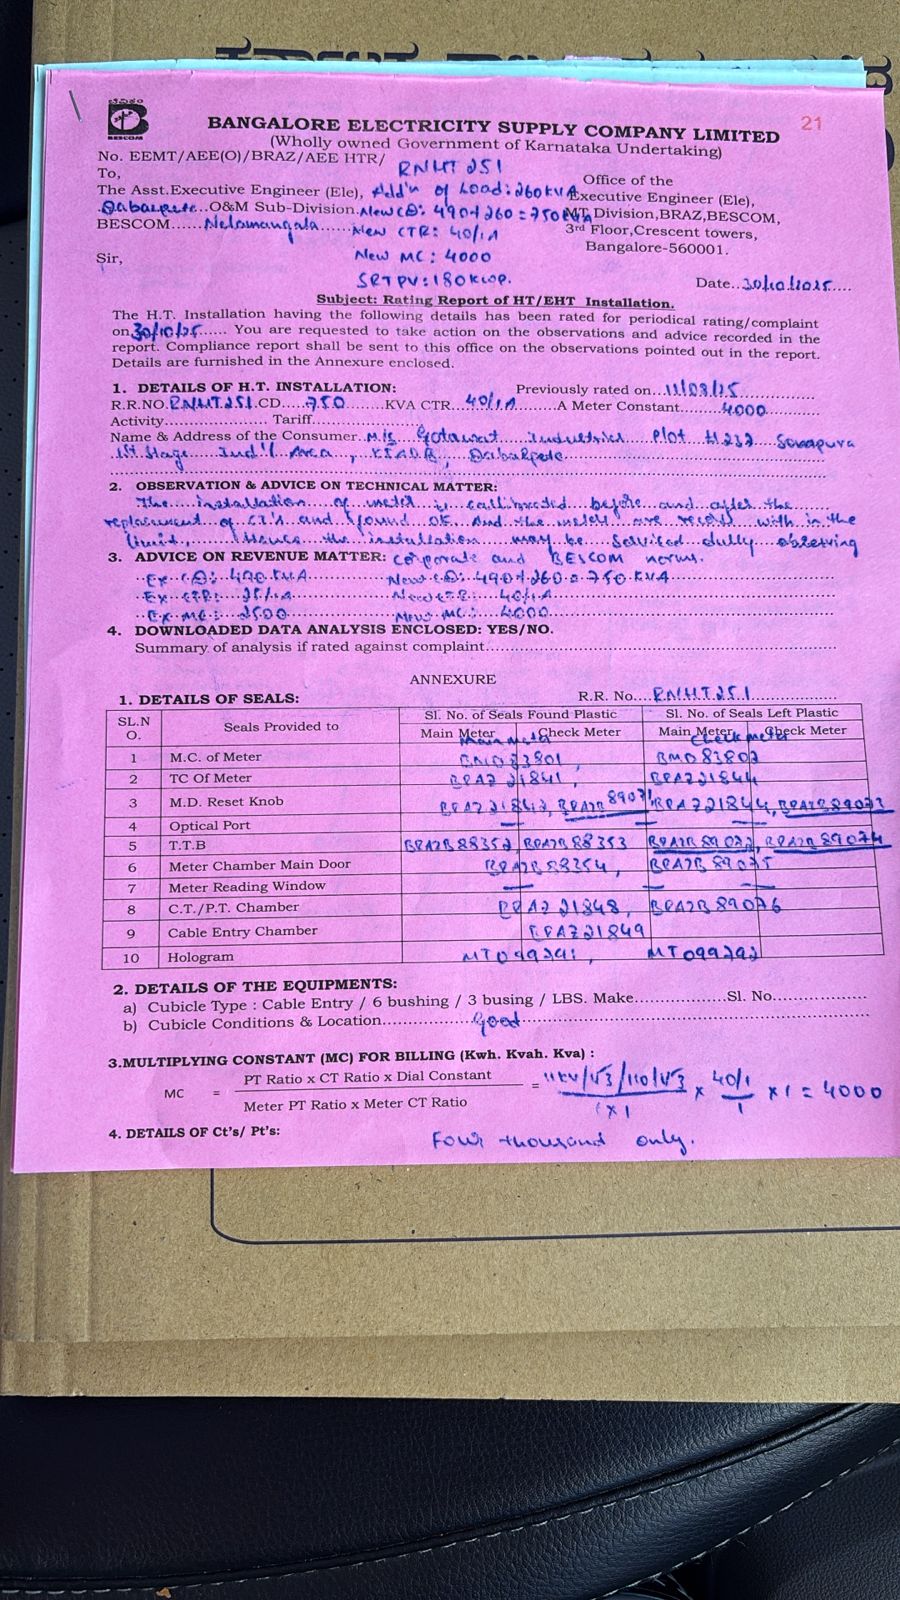 ಬೆವಿಕಂ
BESCOM
21
BANGALORE ELECTRICITY SUPPLY COMPANY LIMITED
(Wholly owned Government of Karnataka Undertaking)
No. EEMT/AEE(O)/BRAZ/AEE HTR/ RNHT 251
To,
Office of the
The Asst.Executive Engineer (Ele), Add'n of Load: 260KVA
Executive Engineer (Ele),
Dabaspete...O&M Sub-Division. New CD: 490+260=750KVA
MT Division,BRAZ,BESCOM,
BESCOM......Nelamangala...... New CTR: 40/1A
3rd Floor,Crescent towers,
Bangalore-560001.
Sir,
New MC: 4000
SRTPV: 180KWP.
Date..30/10/2025.....
Subject: Rating Report of HT/EHT Installation.
The H.T. Installation having the following details has been rated for periodical rating/complaint
on,30/10/25...... You are requested to take action on the observations and advice recorded in the
report. Compliance report shall be sent to this office on the observations pointed out in the report.
Details are furnished in the Annexure enclosed.
1. DETAILS OF H.T. INSTALLATION: Previously rated on...11/08/25
R.R.NO.RNHT251.CD.....750.......KVA CTR...40/1A........A Meter Constant.......4000
Activity.................... Tariff
Name & Address of the Consumer..M/s Industries Plot # 232 Sompura
1st Stage Ind'l Area, KIADB, Dabaspete.
2. OBSERVATION & ADVICE ON TECHNICAL MATTER:
The installation of meter is callibrated before and after the
replacement of CT's and found OK. And the meters are record with in the
limit, Hence the installation may be Serviced dully observing
3. ADVICE ON REVENUE MATTER: corporate and BESCOM norms.
Ex CD: 490 KVA New CD: 490+260=750 KVA
Ex CTR: 25/1A New CTR: 40/1A
Ex MC: 2500 New MC: 4000
4. DOWNLOADED DATA ANALYSIS ENCLOSED: YES/NO.
Summary of analysis if rated against complaint
ANNEXURE
1. DETAILS OF SEALS: R.R. No....RNHT251
SL.N O. Seals Provided to Sl. No. of Seals Found Plastic Sl. No. of Seals Left Plastic
Main Meter Check Meter Main Meter Check Meter
Main Meter Check meter
1 M.C. of Meter BMD83801, BMD83802
2 TC Of Meter BRAZ21841, BRAZ21844
3 M.D. Reset Knob BRAZ21842, BRAZB89071 BRAZ21844, BRAZB89073
4 Optical Port — —
5 T.T.B BRAZB88352 BRAZB88353 BRAZB89072, BRAZB89074
6 Meter Chamber Main Door BRAZB88354, BRAZB89075
7 Meter Reading Window — — —
8 C.T./P.T. Chamber BRAZ21848, BRAZB89076
9 Cable Entry Chamber BRAZ21849
10 Hologram MT099291, MT099292
2. DETAILS OF THE EQUIPMENTS:
a) Cubicle Type : Cable Entry / 6 bushing / 3 busing / LBS. Make...............Sl. No
b) Cubicle Conditions & Location...............Good
3.MULTIPLYING CONSTANT (MC) FOR BILLING (Kwh. Kvah. Kva) :
MC = PT Ratio x CT Ratio x Dial Constant = 11KV/√3/110/√3 x 40/1 x 1 = 4000
Meter PT Ratio x Meter CT Ratio 1 x 1 1
4. DETAILS OF Ct's/ Pt's:
Four thousand only.